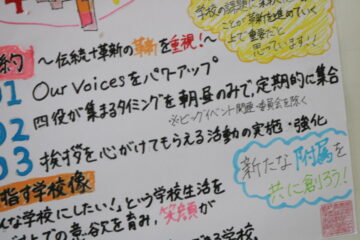 学校の課題に
ことが革新を進めていく
上で重要だと
思っています!!
〜伝統+革新の革新を重視!〜
約
01 Our Voicesをパワーアップ
02 四役が集まるタイミングを朝昼のみで、定期的に集合
※ビッグイベント関連・委員会を除く
03 挨拶を心がけてもらえる活動の実施・強化
指す学校像
んな学校にしたい!」という学校生活を
上での意欲を育み、笑顔が
できる学校
新たな附属を
共に創ろう!